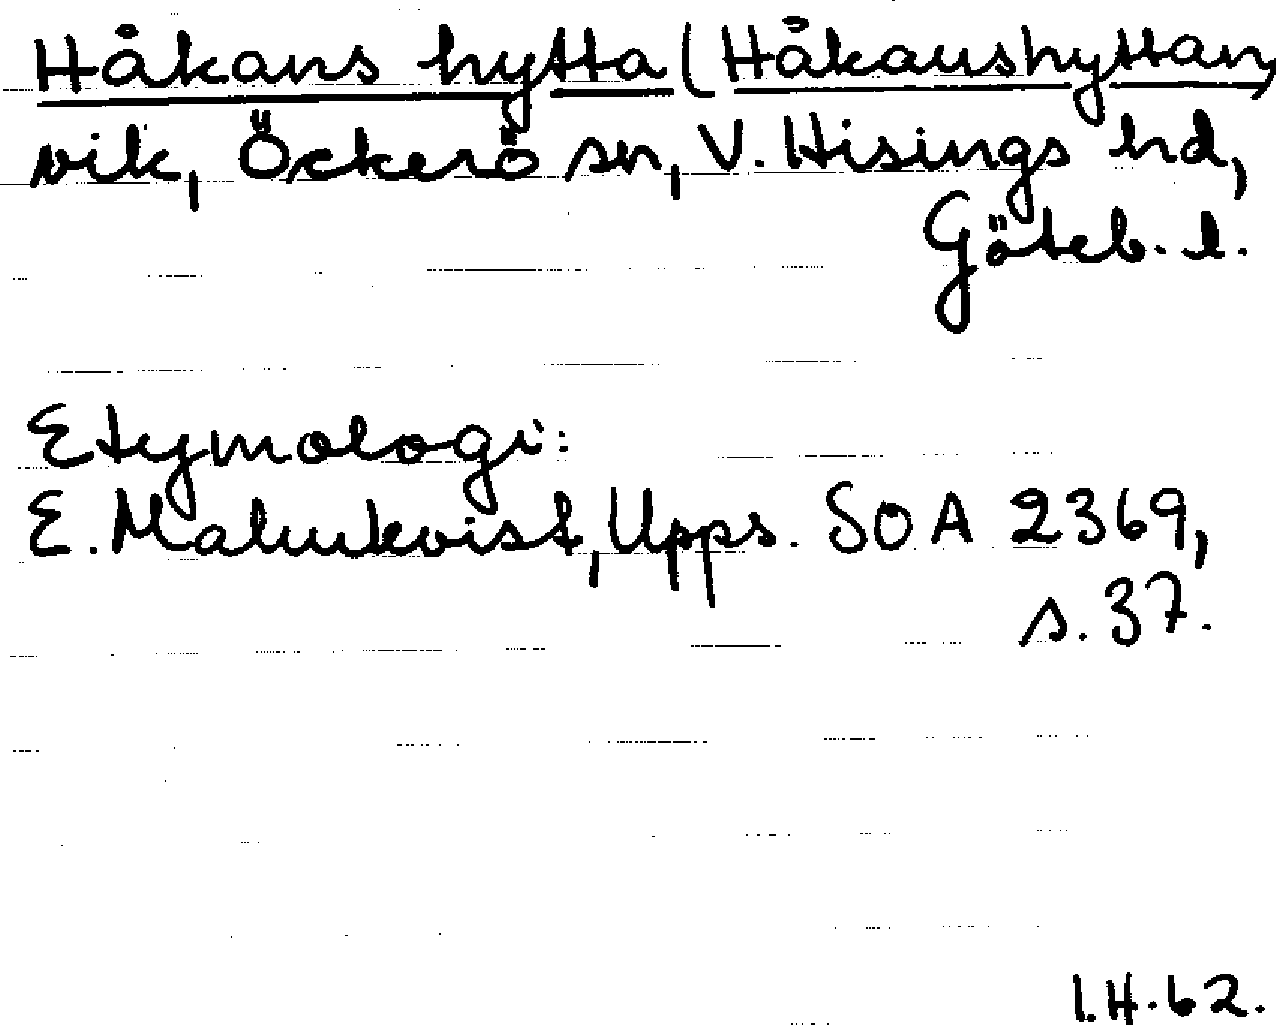 Håkans hytta (Håkanshyttan)
vik, Öckerö sn, V. Hisings hd,
Göteb. l.
Etymologi:
E. Malmkvist, Upps. SOA 2369,
s. 37.
I.H. 62.